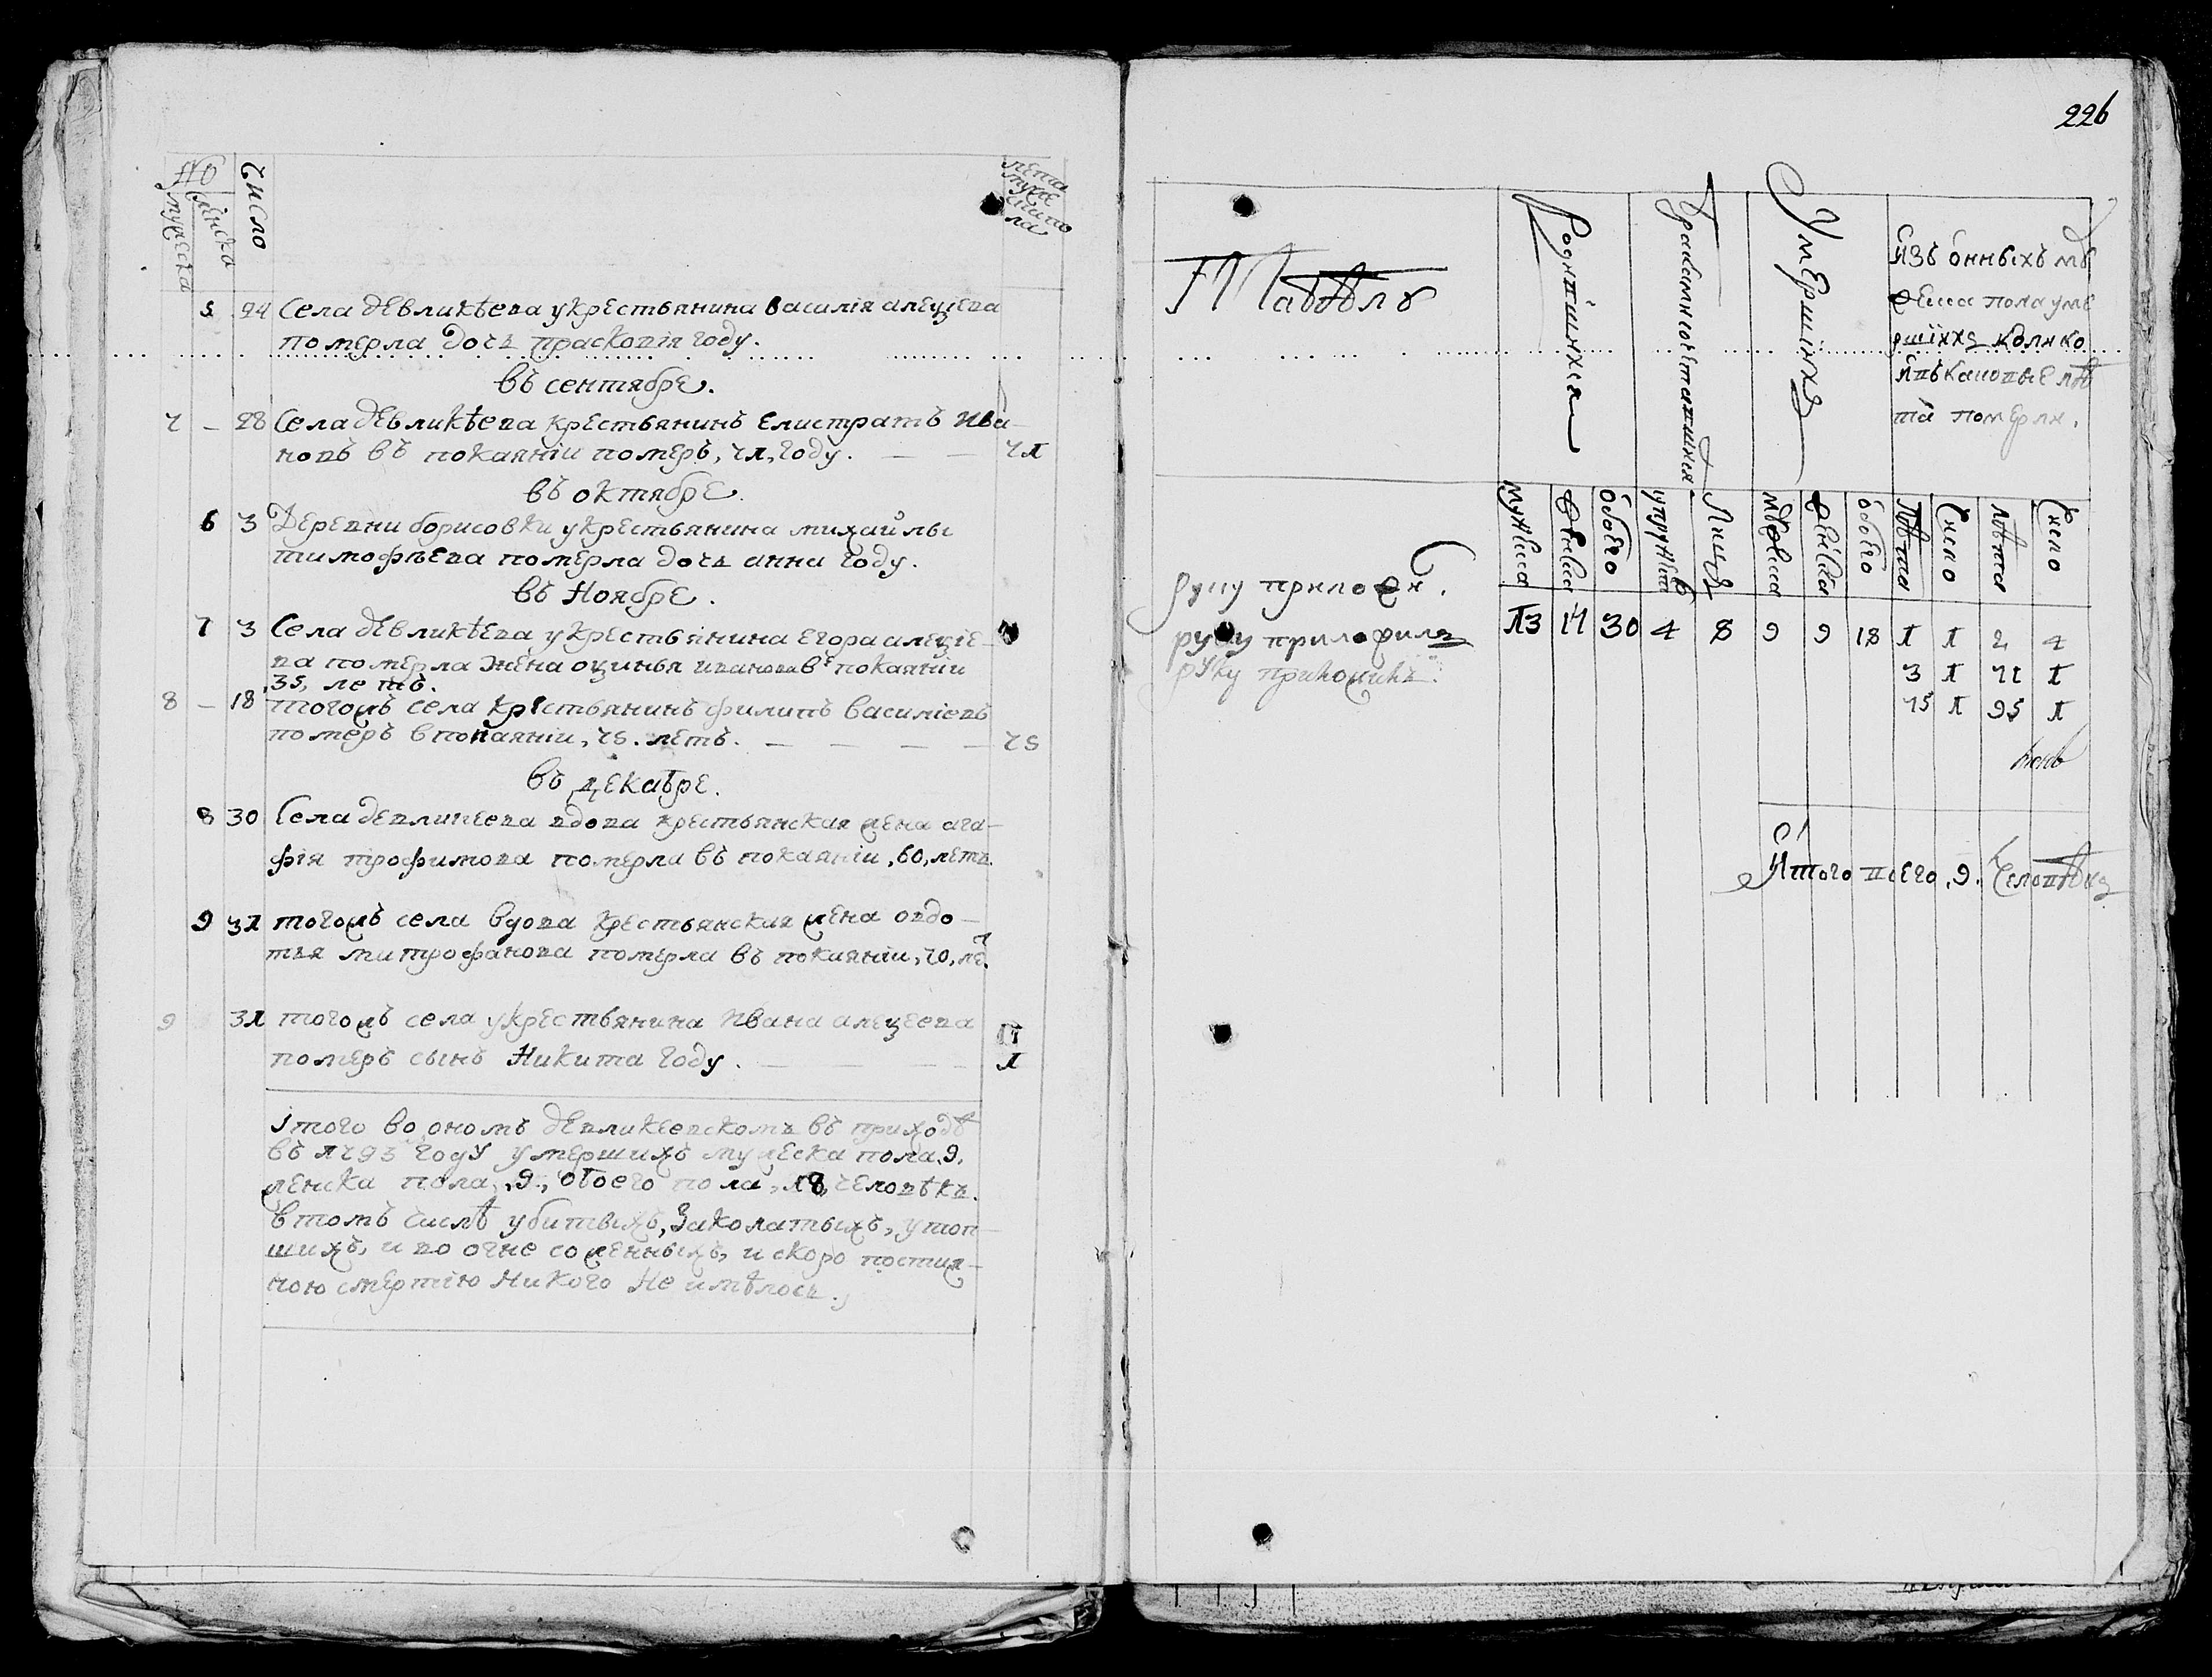 №
мужеска
женска
число
лета
муже
ска по
ла
5 24 Села девликѣева у крестьянина василія алеѯева
померла дочь праскопія году.
въ сентябрѣ.
7 – 28 Села девликѣева крестьянинъ елистратъ Ива–
новъ въ покаяніи померъ, 71, году. — — 71
въ октябрѣ.
6 3 Деревни борисовки у крестьянина михайлы
тимофѣева померла дочь анна году.
въ Ноябрѣ.
7 3 Села девликѣева у крестьянина егора алеѯіе–
ва померла жена оѯинья иванова въ покаяніи
35, летъ.
8 – 18 тогожъ села крестьянинъ филипъ василіевъ
померъ в покаяніи, 75. летъ. — — — — 75
въ декабрѣ.
8 30 Села девликеева вдова крестьянская жена ага–
фія трофимова померла въ покаяніи, 60, летъ.
9 31 тогожъ села вдова крестьянская жена овдо–
тья митрофанова померла въ покаяніи, 70, ле.
9 31 тогожъ села у крестьянина Ивана алеѯеева
померъ сынъ Никита году. — — — 1
Итого во ономъ девликеевскомъ въ приходѣ
въ 1793 году умершихъ мужеска пола, 9,
женска пола, 9, обоего пола, 18, человѣкъ.
в томъ числѣ убитыхъ, Заколатыхъ, утоп–
шихъ, и во огне сожженныхъ, и скоро постиж–
ною смертію Никого Не имѣлось.
226
Табѣль
Родившихся
Бракомъ сочетавшихся
Умершихъ
Изъ онныхъ му
жеска пола уме
ршихъ колико
и въ каковые лѣ
та померли.
мужеска
женска
обоего
супружествъ
Лицъ
мужеска
женска
обоего
Лѣта
Число
лѣта
Число
руку приложи.
руку приложилъ
руку приложилъ.
13 17 30 4 8 9 9 18 1 1 2 4
3 1 71 1
15 1 95 1
Итого всего, 9. Человѣкъ